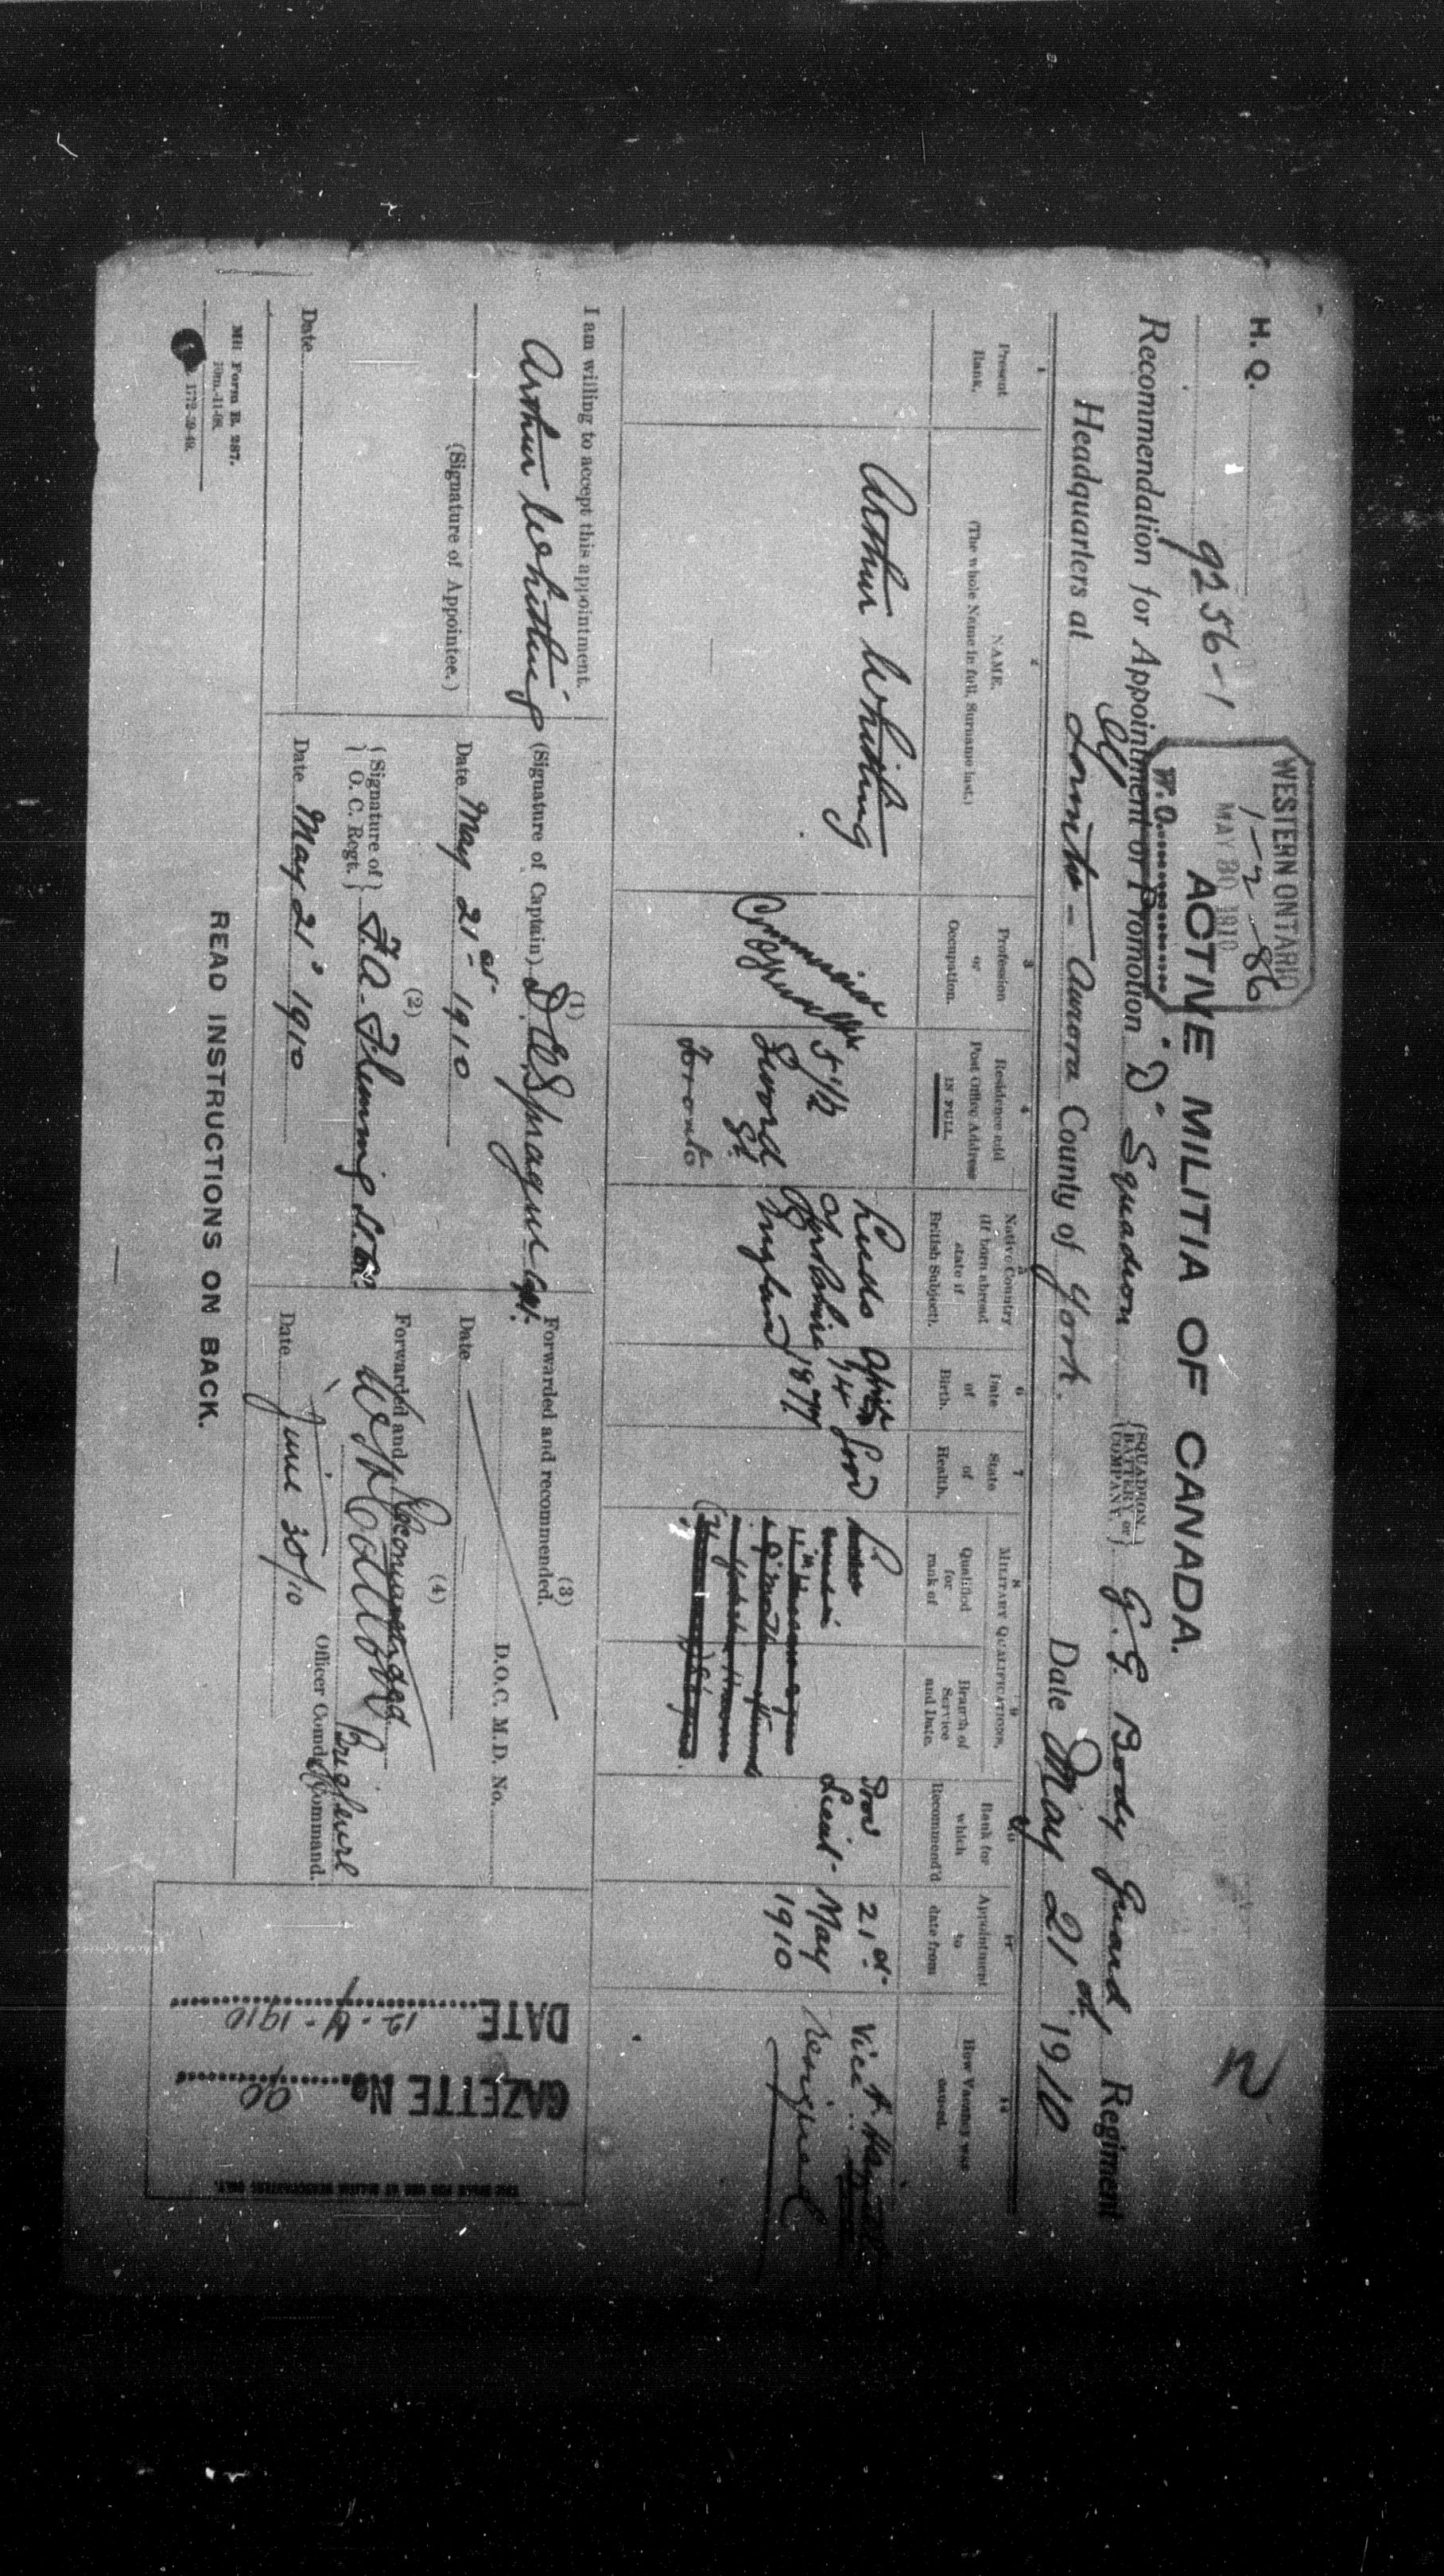 H. Q.
9256-1
WESTERN ONTARIO
1-2-86
MAY 30 1910
W. O.
N
ACTIVE MILITIA OF CANADA.
Recommendation for Appointment or Promotion "D" Squadron {SQUADRON BATTERY or COMPANY} G. G. Body Guard Regiment
Headquarters at Toronto - Aurora County of York. Date May 21st 1910
1
Present
Rank.
2
NAME.
(The whole Name in full, Surname last.)
3
Profession
or
Occupation.
4
Residence and
Post Office Address
IN FULL.
5
Native Country
(If born abroad
state if
British Subject).
6
Date
of
Birth.
7
State
of
Health.
MILITARY QUALIFICATIONS.
8
Qualified
for
rank of
9
Branch of
Service
and Date.
10
Rank for
which
Recommend'd
11
Appointment
to
date from
12
How Vacancy was
caused.
Arthur Whitting
51½
Sword
St.
Toronto
Leeds
Yorkshire
England
April
14
1877
Good
Prov
Lieut-
21st
May
1910
Vice
resigned
I am willing to accept this appointment.
Arthur Whitting
(Signature of Appointee.)
Date
(1)
(Signature of Captain) Sprague Capt.
Date May 21st 1910
(2)
{Signature of O. C. Regt.} F. A. Fleming Lt. Col.
Date May 21st 1910
(3)
Forwarded and recommended.
D.O.C. M.D. No.
Date
(4)
Forwarded and Recommended
W H Cotton
Officer Comdg Command.
Date June 30/10
DATE 12-9-1910
GAZETTE No. 90
THIS SPACE FOR USE AT MILITIA HEADQUARTERS ONLY.
Mil: Form B. 287.
10m.-11-08.
1772-39-49.
READ INSTRUCTIONS ON BACK.